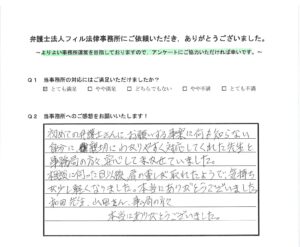 弁護士法人フィル法律事務所にご依頼いただき、ありがとうございました。
～よりよい事務所運営を目指しておりますので、アンケートにご協力いただければ幸いです。～
Q1 当事務所の対応にはご満足いただけましたか？
☑とても満足 □やや満足 □どちらでもない □やや不満 □とても不満
Q2 当事務所へのご感想をお願いいたします！
初めての弁護士さんにお願いする事案に何も知らない
自分に親切にわかりやすく対応してくれた先生と
事務局の方で安心してまかせていました。
相談に伺った日以後、肩の重しが取れたようで、気持ち
も少し軽くなりました。本当にありがとうございました。
和田先生、山田さん、事務局の方
本当にありがとうございました。